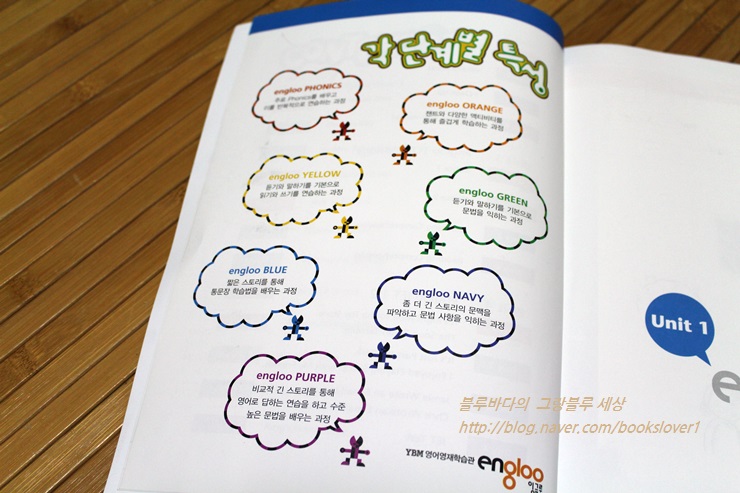 각 단계별 특성
engloo PHONICS
주요 Phonics를 배우고
이를 반복적으로 연습하는 과정
engloo ORANGE
챈트와 다양한 액티비티를
통해 즐겁게 학습하는 과정
engloo YELLOW
듣기와 말하기를 기본으로
읽기와 쓰기를 연습하는 과정
engloo GREEN
듣기와 말하기를 기본으로
문법을 익히는 과정
engloo BLUE
짧은 스토리를 통해
통문장 학습법을 배우는 과정
engloo NAVY
좀 더 긴 스토리의 문맥을
파악하고 문법 사항을 익히는 과정
engloo PURPLE
비교적 긴 스토리를 통해
영어로 답하는 연습을 하고 수준
높은 문법을 배우는 과정
YBM 영어영재학습관 engloo
이그루
Unit 1
블루바다의 그랑블루 세상
http://blog.naver.com/bookslover1